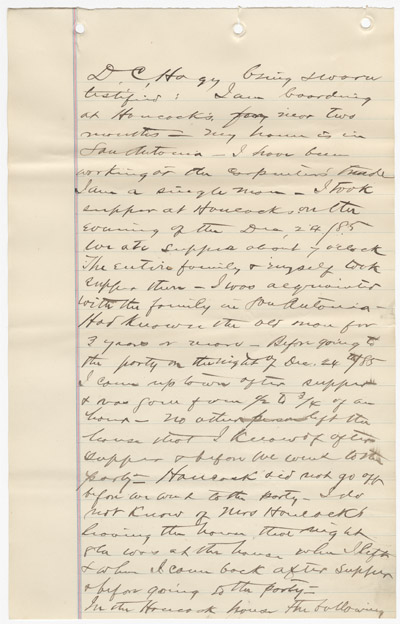 D. C. Hagy being sworn
testified: I am boarding
at Hancock's, for near two
months — my home is in
San Antonia — I have been
working at the carpenters trade
I am a single man — I took
supper at Hancocks on the
evening of the Dec, 24/85
We ate supper about 7 oclock
The entire family & myself took
supper then — I was acquainted
with the family in San Antonia —
Had known the old man for
3 years or more — Before going to
the party on the night of Dec. 24th/85
I came up town after supper
& was gone from 1/2 to 3/4 of an
hour — no other person left the
house that I know of after
supper & before we went to the
party — Hancock did not go off
before we went to the party — I do
not know of Mrs Hancock's
leaving the house that night
She was at the house when I left
& when I came back after supper
& before going to the party —
In the Hancock house the following